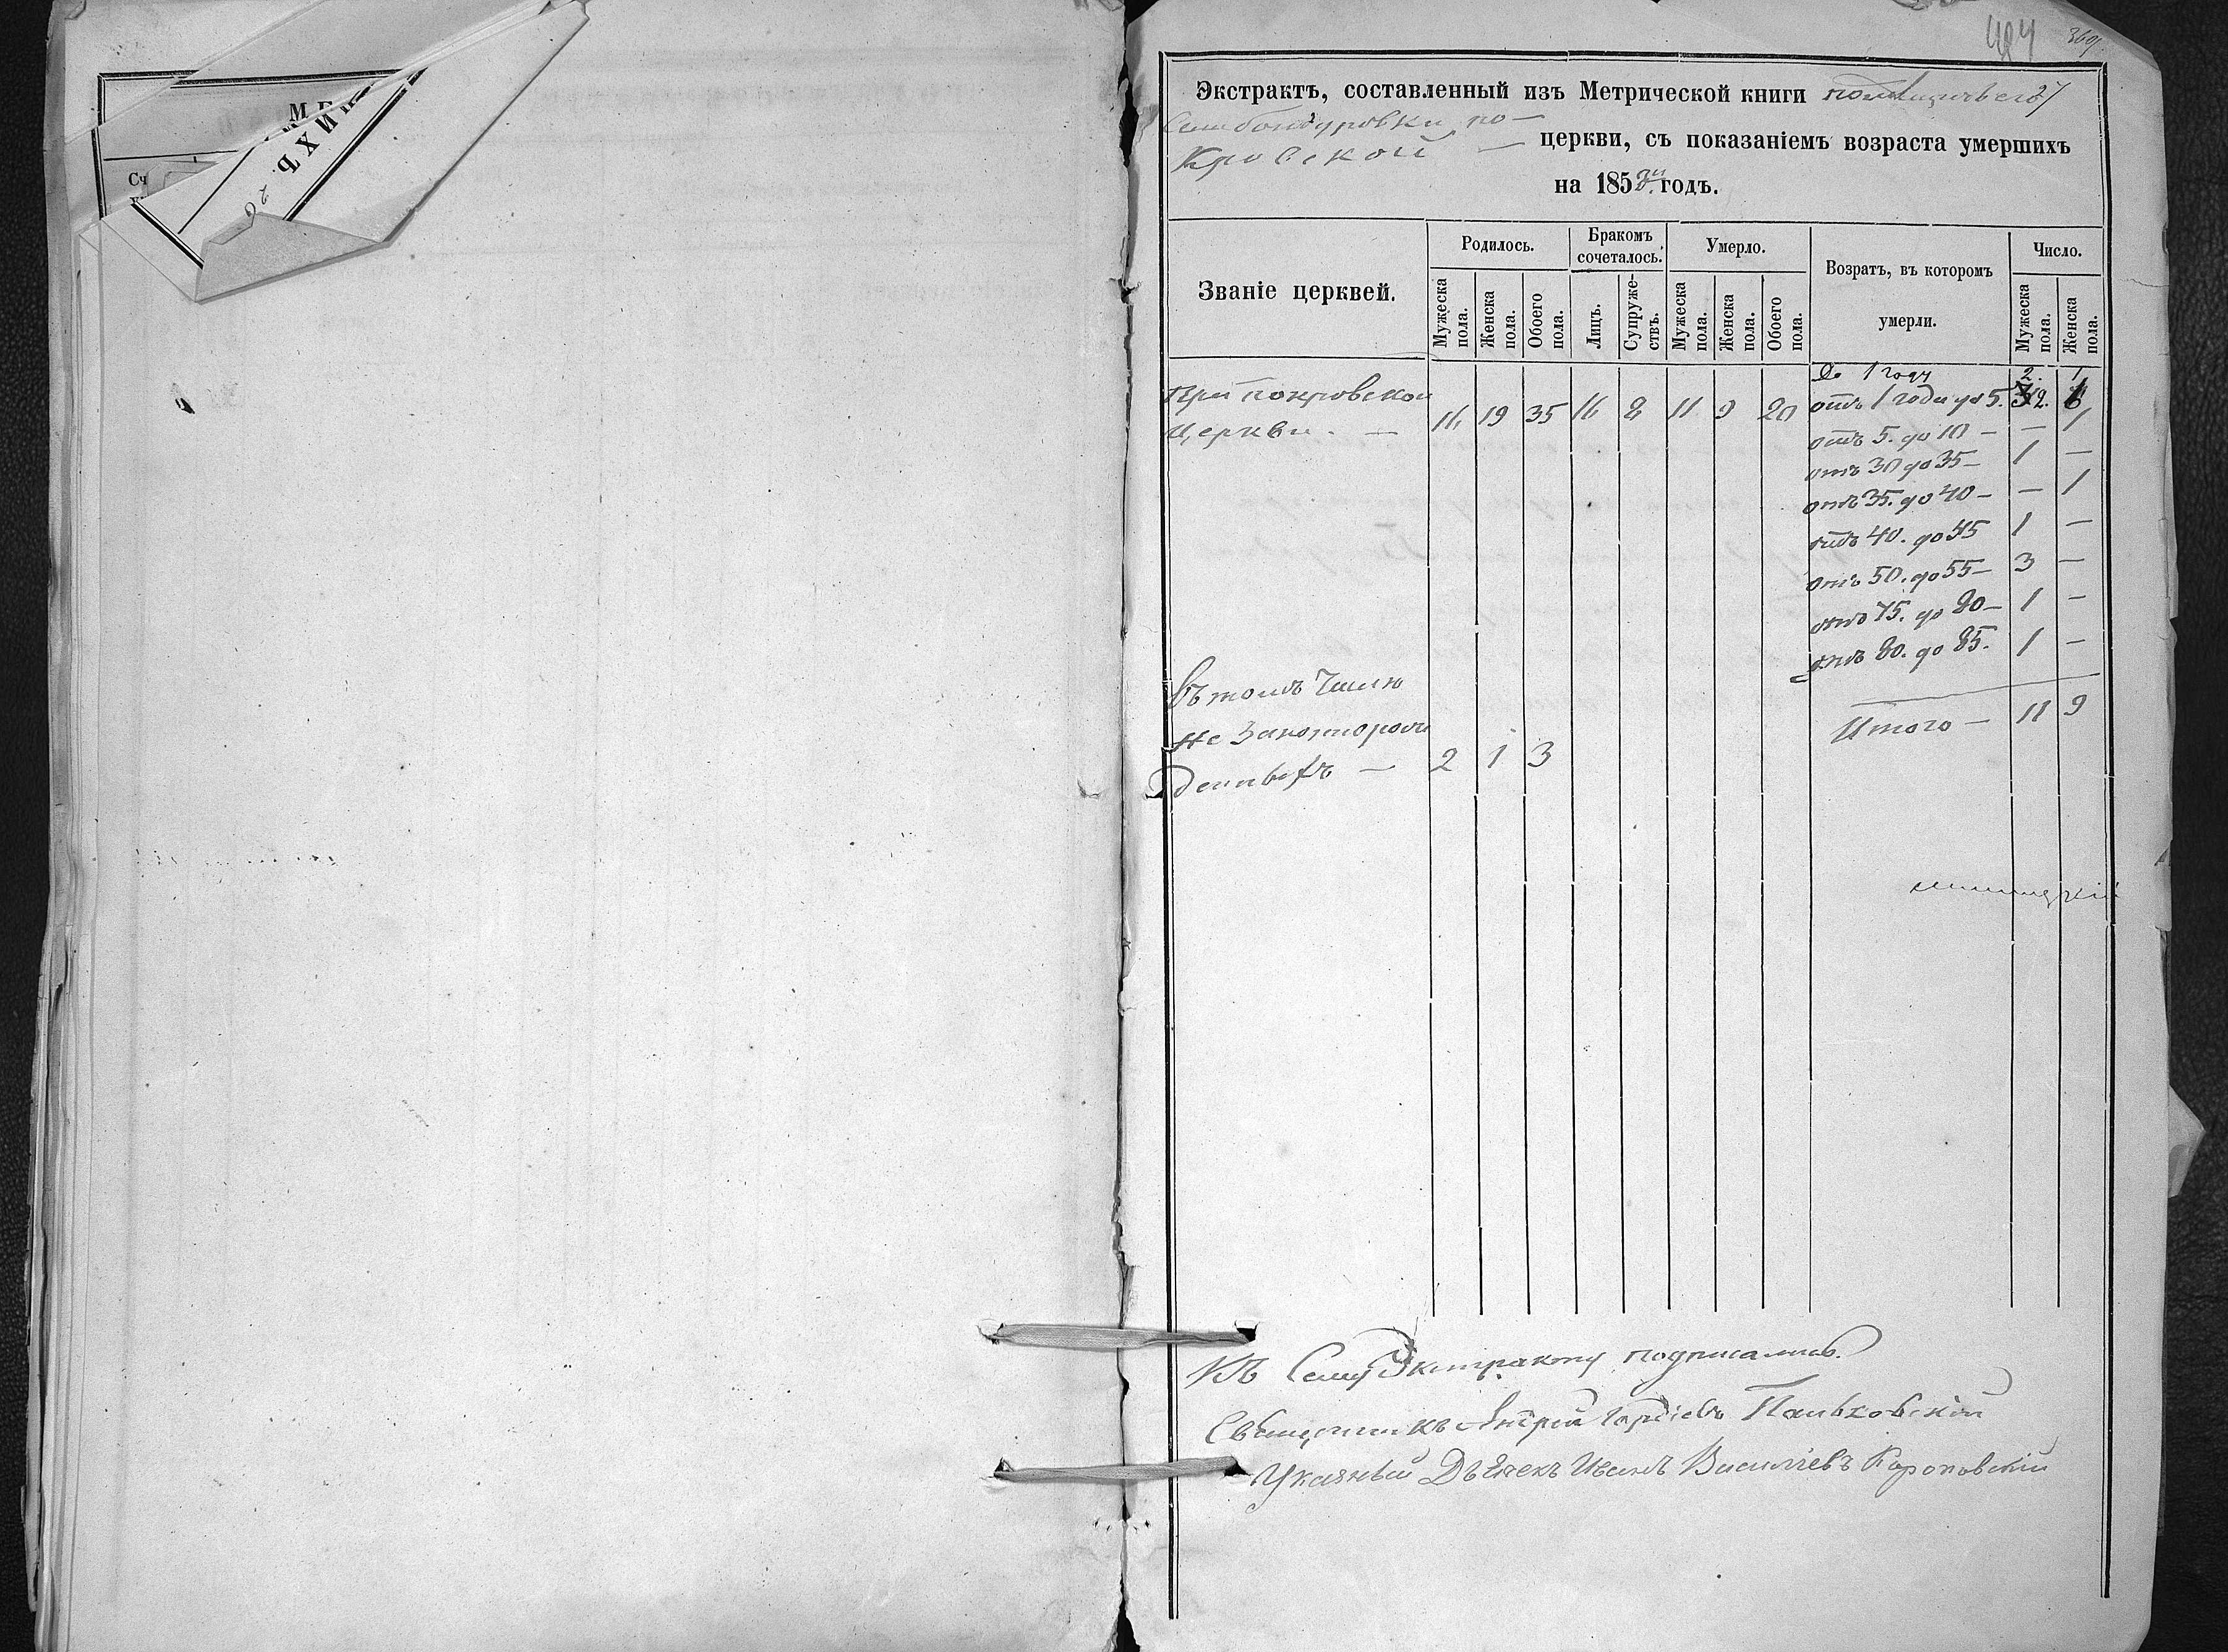 МЕ
ИХЪ.
26
Сч
369
Экстрактъ, составленный изъ Метрической книги
по-
кровской — церкви, съ показаніемъ возраста умершихъ
на 185 годъ.
Званіе церквей.
Родилось.
Бракомъ сочеталось.
Умерло.
Возрать, въ которомъ умерли.
Число.
Мужеска пола.
Женска пола.
Обоего пола.
Лицъ.
Супруже-ствъ.
Мужеска пола.
Женска пола.
Обоего пола.
Мужеска пола.
Женска пола.
До 1 году 2. 1
При покровской
Церкви. — 16 19 35 16 8 11 9 20
отъ 1 года до 5. 2. 6
отъ 5. до 10 — — 1
отъ 30 до 35 — 1 —
отъ 35. до 40 — — 1
отъ 40. до 45 1 —
отъ 50. до 55 — 3 —
отъ 75. до 80 — 1 —
отъ 80. до 85. 1 —
Итого — 11 9
Въ томъ числѣ
не законнорож
денныхъ — 2 1 3
Къ сему Экстракту подписались.
Священникъ Андрей Гордіевъ Паньковскій
Указный Дьячекъ Иванъ Василіевъ Короповскій